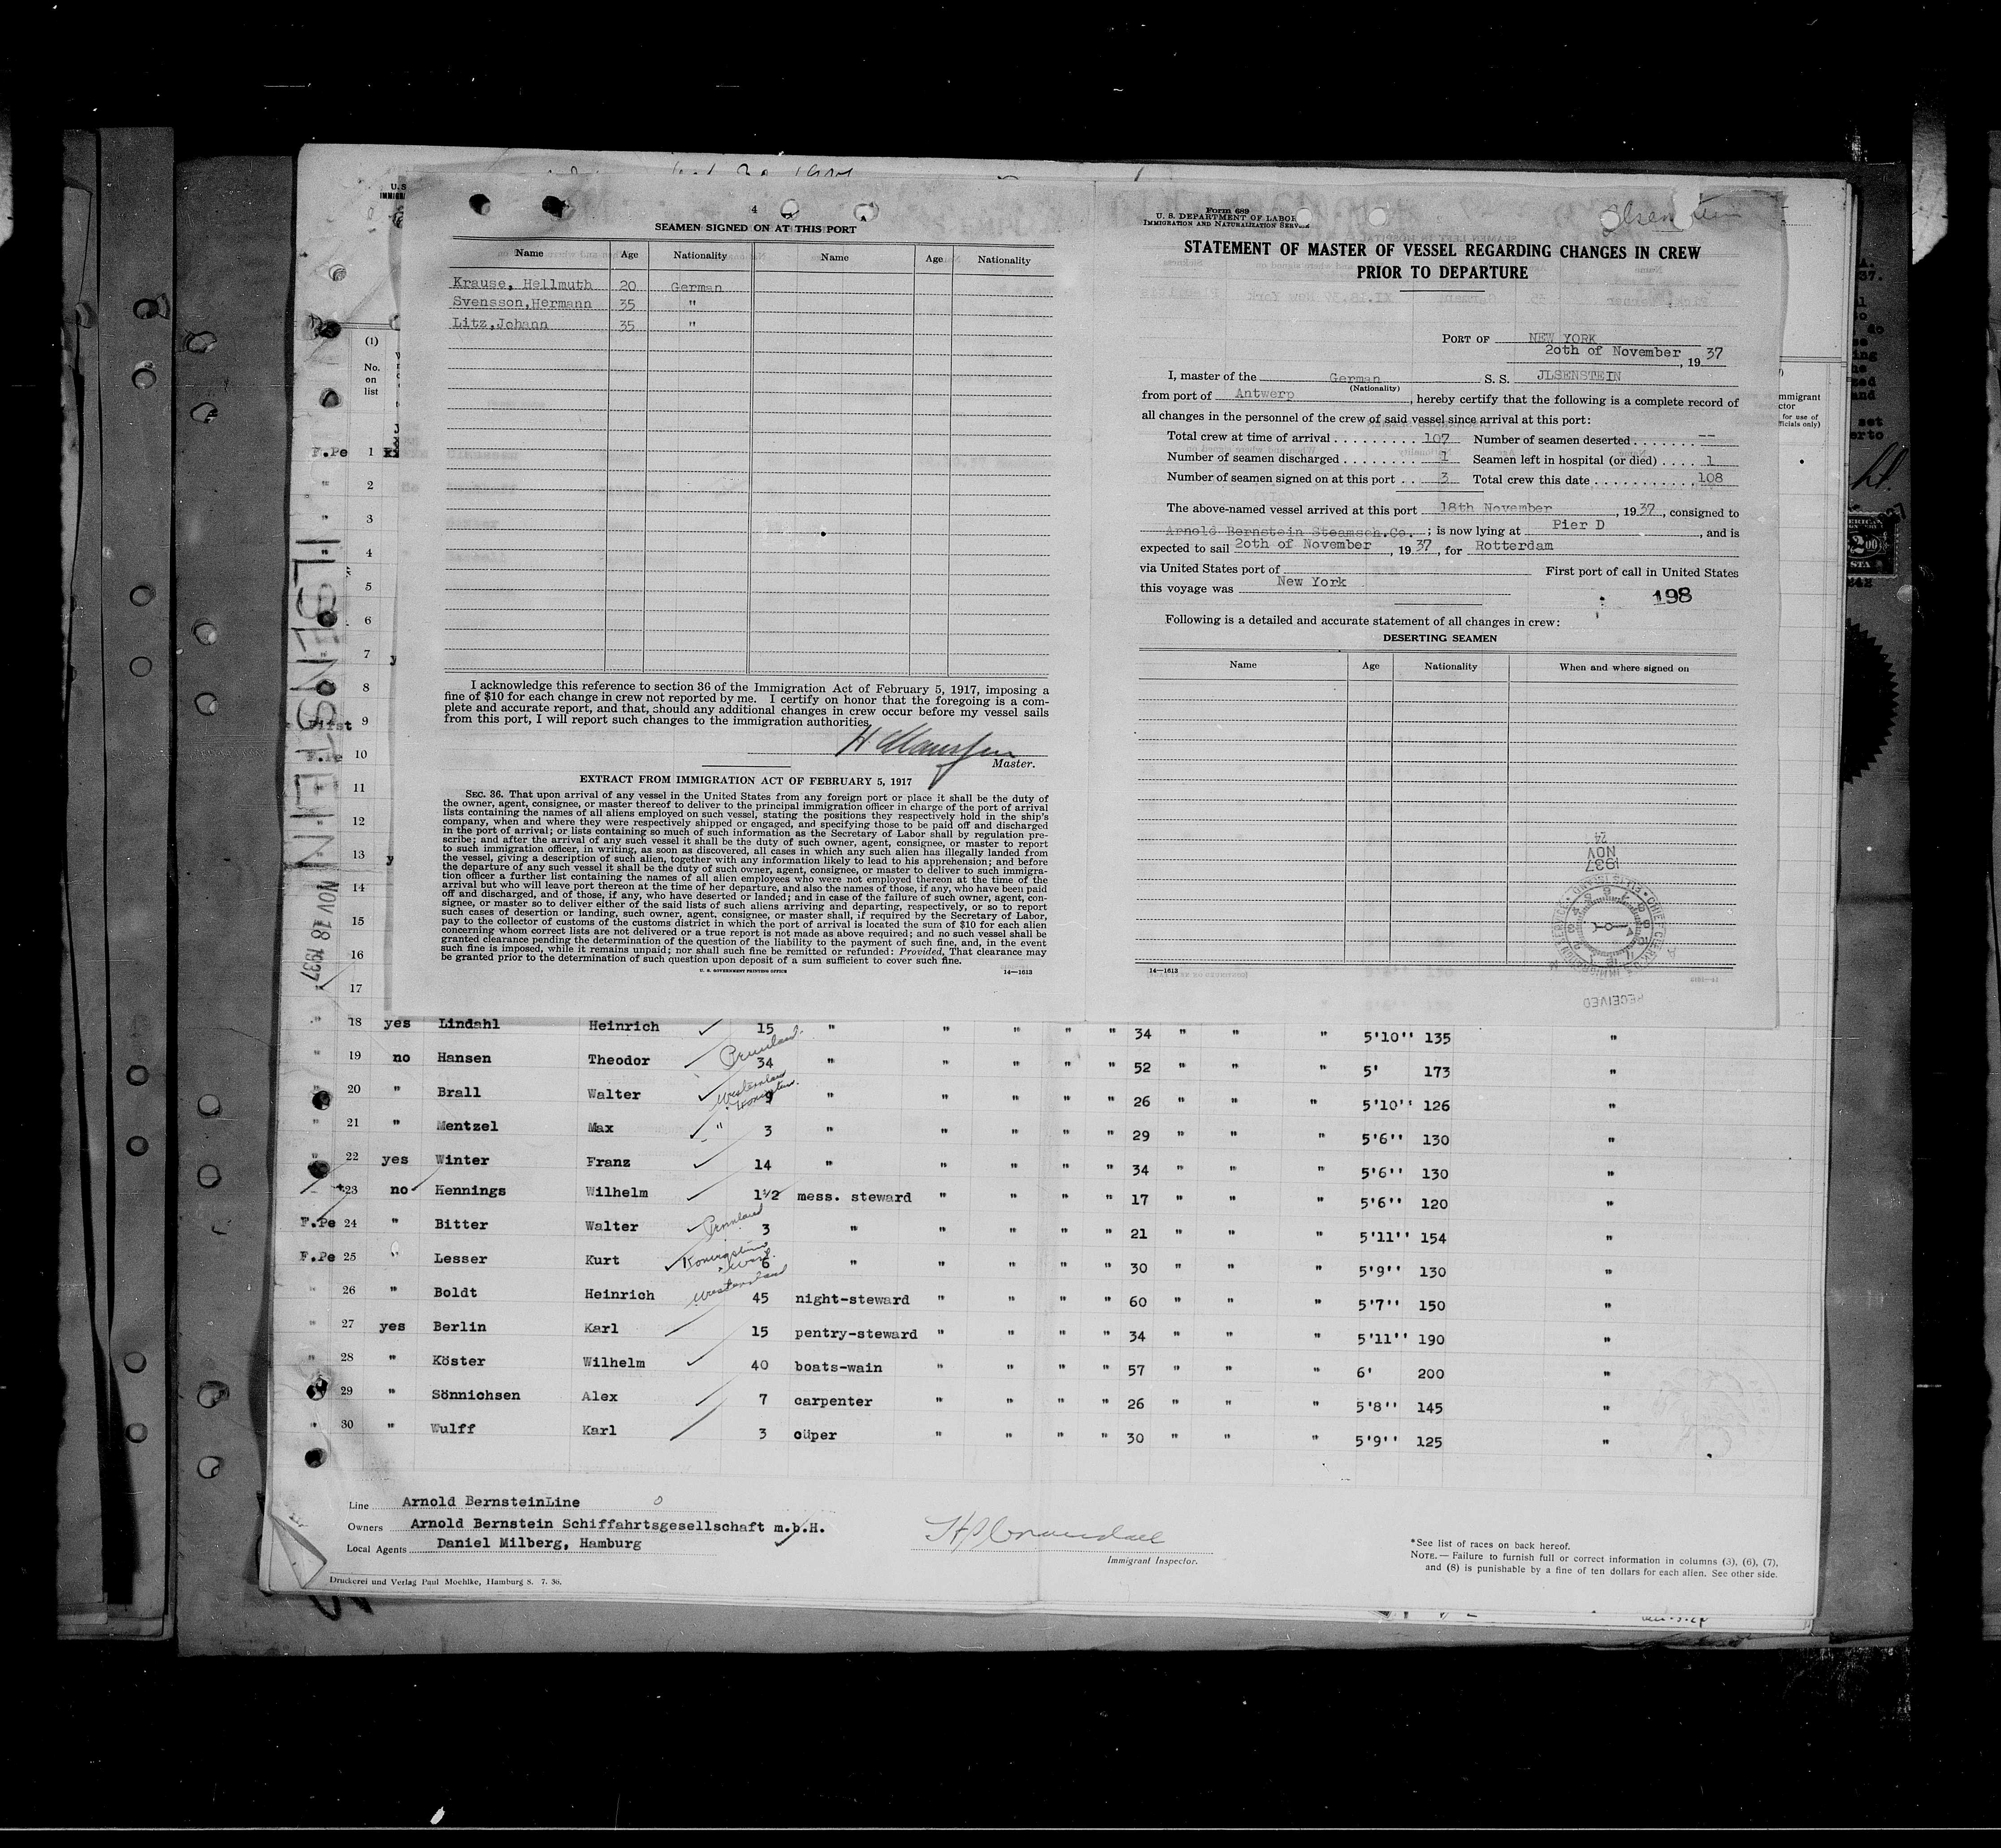 4
SEAMEN SIGNED ON AT THIS PORT
Name Age Nationality Name Age Nationality
Krause, Hellmuth 20 German
Svensson,Hermann 35 "
Litz,Johann 35 "
I acknowledge this reference to section 36 of the Immigration Act of February 5, 1917, imposing a
fine of $10 for each change in crew not reported by me. I certify on honor that the foregoing is a com-
plete and accurate report, and that, should any additional changes in crew occur before my vessel sails
from this port, I will report such changes to the immigration authorities.
Master.
EXTRACT FROM IMMIGRATION ACT OF FEBRUARY 5, 1917
SEC. 36. That upon arrival of any vessel in the United States from any foreign port or place it shall be the duty of
the owner, agent, consignee, or master thereof to deliver to the principal immigration officer in charge of the port of arrival
lists containing the names of all aliens employed on such vessel, stating the positions they respectively hold in the ship's
company, when and where they were respectively shipped or engaged, and specifying those to be paid off and discharged
in the port of arrival; or lists containing so much of such information as the Secretary of Labor shall by regulation pre-
scribe; and after the arrival of any such vessel it shall be the duty of such owner, agent, consignee, or master to report
to such immigration officer, in writing, as soon as discovered, all cases in which any such alien has illegally landed from
the vessel, giving a description of such alien, together with any information likely to lead to his apprehension; and before
the departure of any such vessel it shall be the duty of such owner, agent, consignee, or master to deliver to such immigra-
tion officer a further list containing the names of all alien employees who were not employed thereon at the time of the
arrival but who will leave port thereon at the time of her departure, and also the names of those, if any, who have been paid
off and discharged, and of those, if any, who have deserted or landed; and in case of the failure of such owner, agent, con-
signee, or master so to deliver either of the said lists of such aliens arriving and departing, respectively, or so to report
such cases of desertion or landing, such owner, agent, consignee, or master shall, if required by the Secretary of Labor,
pay to the collector of customs of the customs district in which the port of arrival is located the sum of $10 for each alien
concerning whom correct lists are not delivered or a true report is not made as above required; and no such vessel shall be
granted clearance pending the determination of the question of the liability to the payment of such fine, and, in the event
such fine is imposed, while it remains unpaid; nor shall such fine be remitted or refunded: Provided, That clearance may
be granted prior to the determination of such question upon deposit of a sum sufficient to cover such fine.
U. S. GOVERNMENT PRINTING OFFICE 14—1613
Form 689
U. S. DEPARTMENT OF LABOR
IMMIGRATION AND NATURALIZATION SERVICE
Ilsenstein
STATEMENT OF MASTER OF VESSEL REGARDING CHANGES IN CREW
PRIOR TO DEPARTURE
PORT OF NEW YORK
2oth of November, 1937
I, master of the German S. S. JLSENSTEIN
(Nationality)
from port of Antwerp, hereby certify that the following is a complete record of
all changes in the personnel of the crew of said vessel since arrival at this port:
Total crew at time of arrival 107 Number of seamen deserted --
Number of seamen discharged 1 Seamen left in hospital (or died) 1
Number of seamen signed on at this port 3 Total crew this date 108
The above-named vessel arrived at this port 18th November, 1937, consigned to
Arnold Bernstein Steamsch.Co.; is now lying at Pier D, and is
expected to sail 2oth of November, 1937, for Rotterdam
via United States port of First port of call in United States
this voyage was New York
198
Following is a detailed and accurate statement of all changes in crew:
DESERTING SEAMEN
Name Age Nationality When and where signed on
NOV 24 1937
RECEIVED
14—1613
ILSENSTEIN NOV 18 1937
(1)
No.
on
list
F.Pe 1
" 2
" 3
" 4
5
6
7
8
First 9
F.Pe 10
11
12
13
14
15
16
17
" 18 yes Lindahl Heinrich 15 " " " " " 34 " " " 5'10'' 135 "
" 19 no Hansen Theodor 34 " " " " " 52 " " " 5' 173 "
" 20 " Brall Walter Westernland 9 " " " " " 26 " " " 5'10'' 126 "
" 21 " Mentzel Max " 3 " " " " " 29 " " " 5'6'' 130 "
" 22 yes Winter Franz 14 " " " " " 34 " " " 5'6'' 130 "
23 no Hennings Wilhelm 1½ mess. steward " " " " 17 " " " 5'6'' 120 "
F.Pe 24 " Bitter Walter 3 " " " " " 21 " " " 5'11'' 154 "
F.Pe 25 " Lesser Kurt 6 " " " " " 30 " " " 5'9'' 130 "
" 26 " Boldt Heinrich Westernland 45 night-steward " " " " 60 " " " 5'7'' 150 "
" 27 yes Berlin Karl 15 pentry-steward " " " " 34 " " " 5'11'' 190 "
" 28 " Köster Wilhelm 40 boats-wain " " " " 57 " " " 6' 200 "
" 29 " Sönnichsen Alex 7 carpenter " " " " 26 " " " 5'8'' 145 "
" 30 " Wulff Karl 3 cüper " " " " 30 " " " 5'9'' 125 "
Line Arnold BernsteinLine
Owners Arnold Bernstein Schiffahrtsgesellschaft m.b.H.
Local Agents Daniel Milberg, Hamburg
Immigrant Inspector.
*See list of races on back hereof.
NOTE.—Failure to furnish full or correct information in columns (3), (6), (7),
and (8) is punishable by a fine of ten dollars for each alien. See other side.
Druckerei und Verlag Paul Moehlke, Hamburg 8. 7. 36.